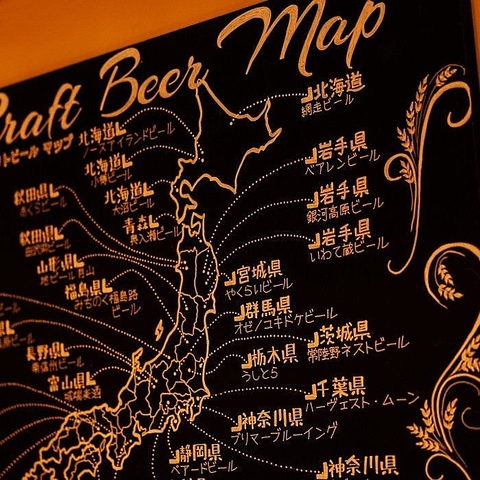 Craft Beer Map
トビール マップ
北海道
ノースアイランドビール
北海道
小樽ビール
北海道
大沼ビール
青森県
奥入瀬ビール
秋田県
あくらビール
秋田県
田沢湖ビール
山形県
地ビール月山
福島県
みちのく福島路
ビール
長野県
南信州ビール
富山県
城端麦酒
北海道
網走ビール
岩手県
ベアレンビール
岩手県
銀河高原ビール
岩手県
いわて蔵ビール
宮城県
やくらいビール
群馬県
オゼノユキドケビール
茨城県
常陸野ネストビール
栃木県
うしとら
千葉県
ハーヴェスト・ムーン
神奈川県
ブリマーブルーイング
静岡県
ベアードビール
神奈川県